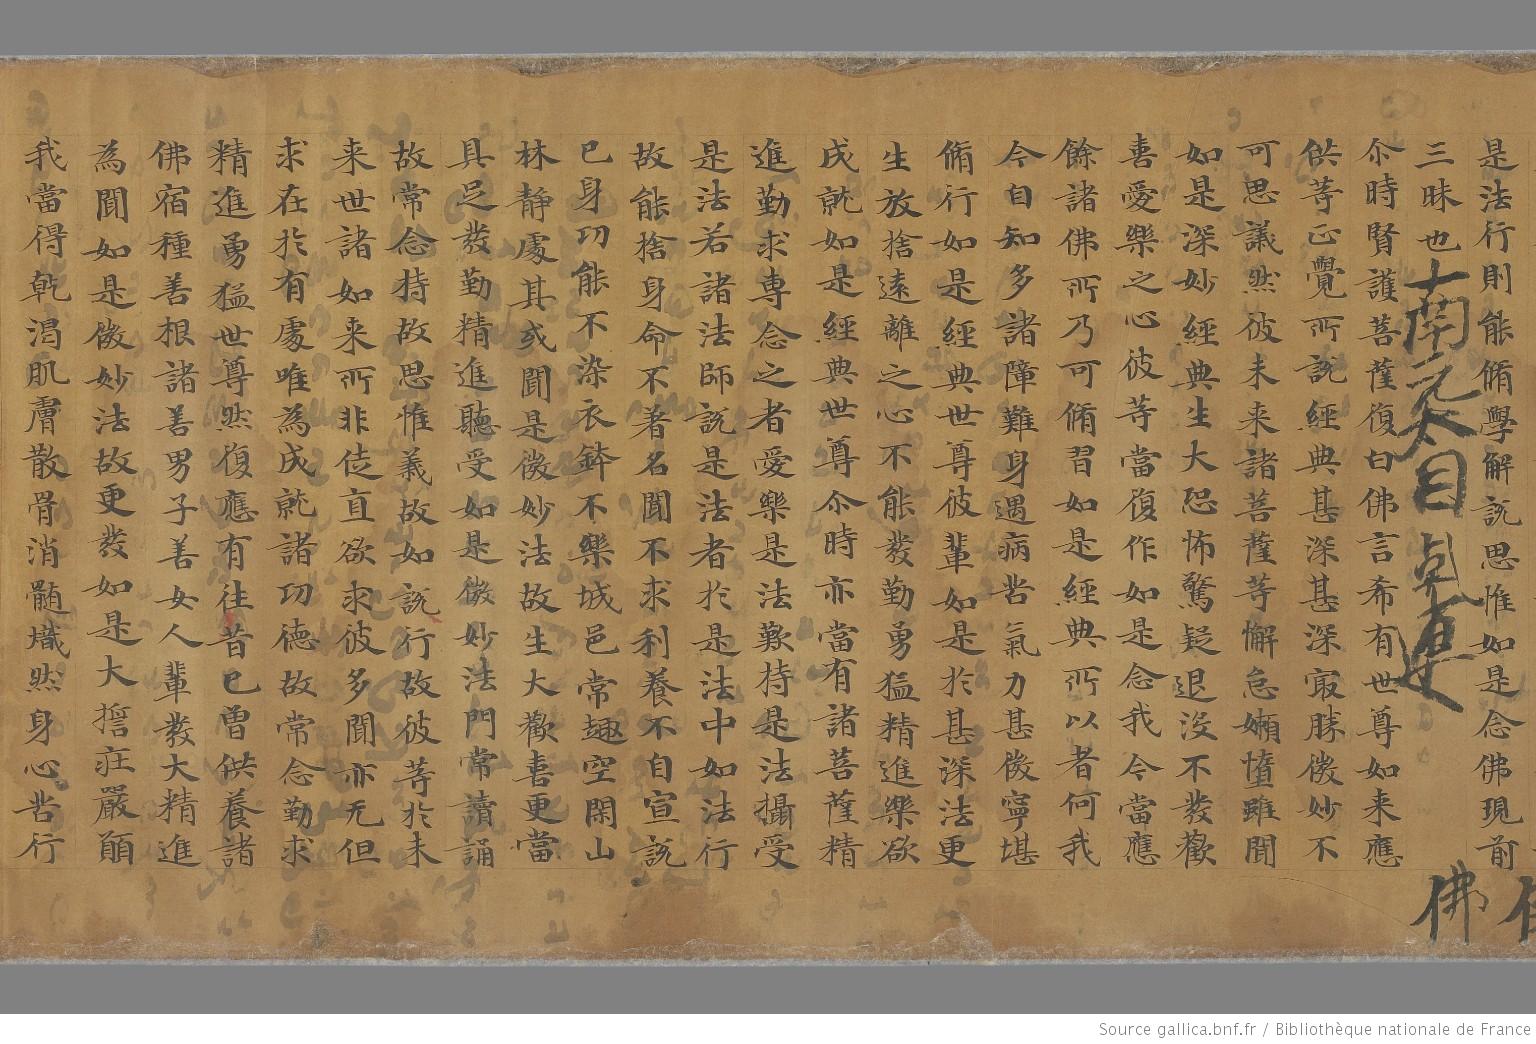 是法行則能脩學解說思惟如是念佛現前
三昧也
尒時賢護菩薩復白佛言希有世尊如来應
供等正覺所說經典甚深甚深寂勝微妙不
可思議然彼未来諸菩薩等懈怠嬾憜雖聞
如是深妙經典生大恐怖驚疑退沒不發歡
喜愛樂之心彼等當復作如是念我今當應
餘諸佛所乃可脩習如是經典所以者何我
今自知多諸障難身遇病苦氣力甚微寧堪
脩行如是經典世尊彼輩如是於甚深法更
生放捨遠離之心不能發勤勇猛精進樂欲
成就如是經典世尊尒時亦當有諸菩薩精
進勤求專念之者愛樂是法歎持是法攝受
是法若諸法師說是法者於是法中如法行
故能捨身命不著名聞不求利養不自宣說
己身功能不染衣鉢不樂城邑常趣空閑山
林靜處其或聞是微妙法故生大歡喜更當
具足發勤精進聽受如是微妙法門常讀誦
故常念持故思惟義故如說行故彼等於未
来世諸如来所非徒直欲求彼多聞亦无但
求在於有處唯為成就諸功德故常念勤求
精進勇猛世尊然復應有往昔已曾供養諸
佛宿種善根諸善男子善女人輩發大精進
為聞如是微妙法故更發如是大擔疰嚴願
我當得乹渴肌膚散骨消髄熾然身心苦行
佛